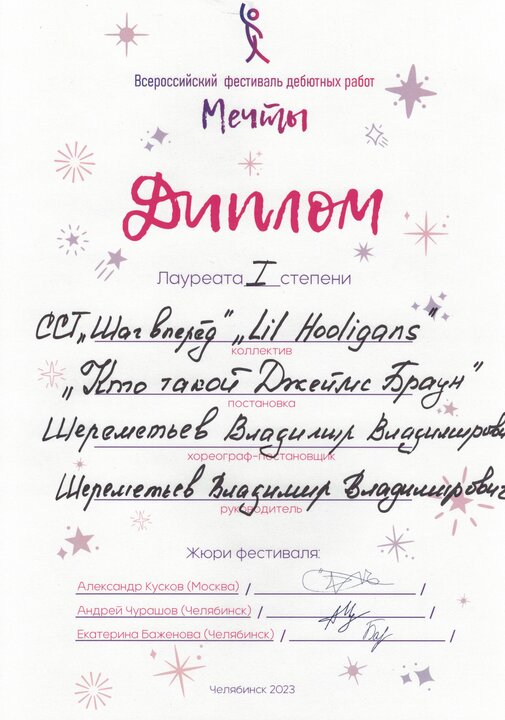 Всероссийский фестиваль дебютных работ
Мечты
Диплом
Лауреата I степени
ССТ „Шаг вперёд" „Lil Hooligans"
коллектив
„Кто такой Джеймс Браун"
постановка
Шереметьев Владимир Владимирович
хореограф-постановщик
Шереметьев Владимир Владимирович
руководитель
Жюри фестиваля:
Александр Кусков (Москва) / /
Андрей Чурашов (Челябинск) / /
Екатерина Баженова (Челябинск) / /
Челябинск 2023